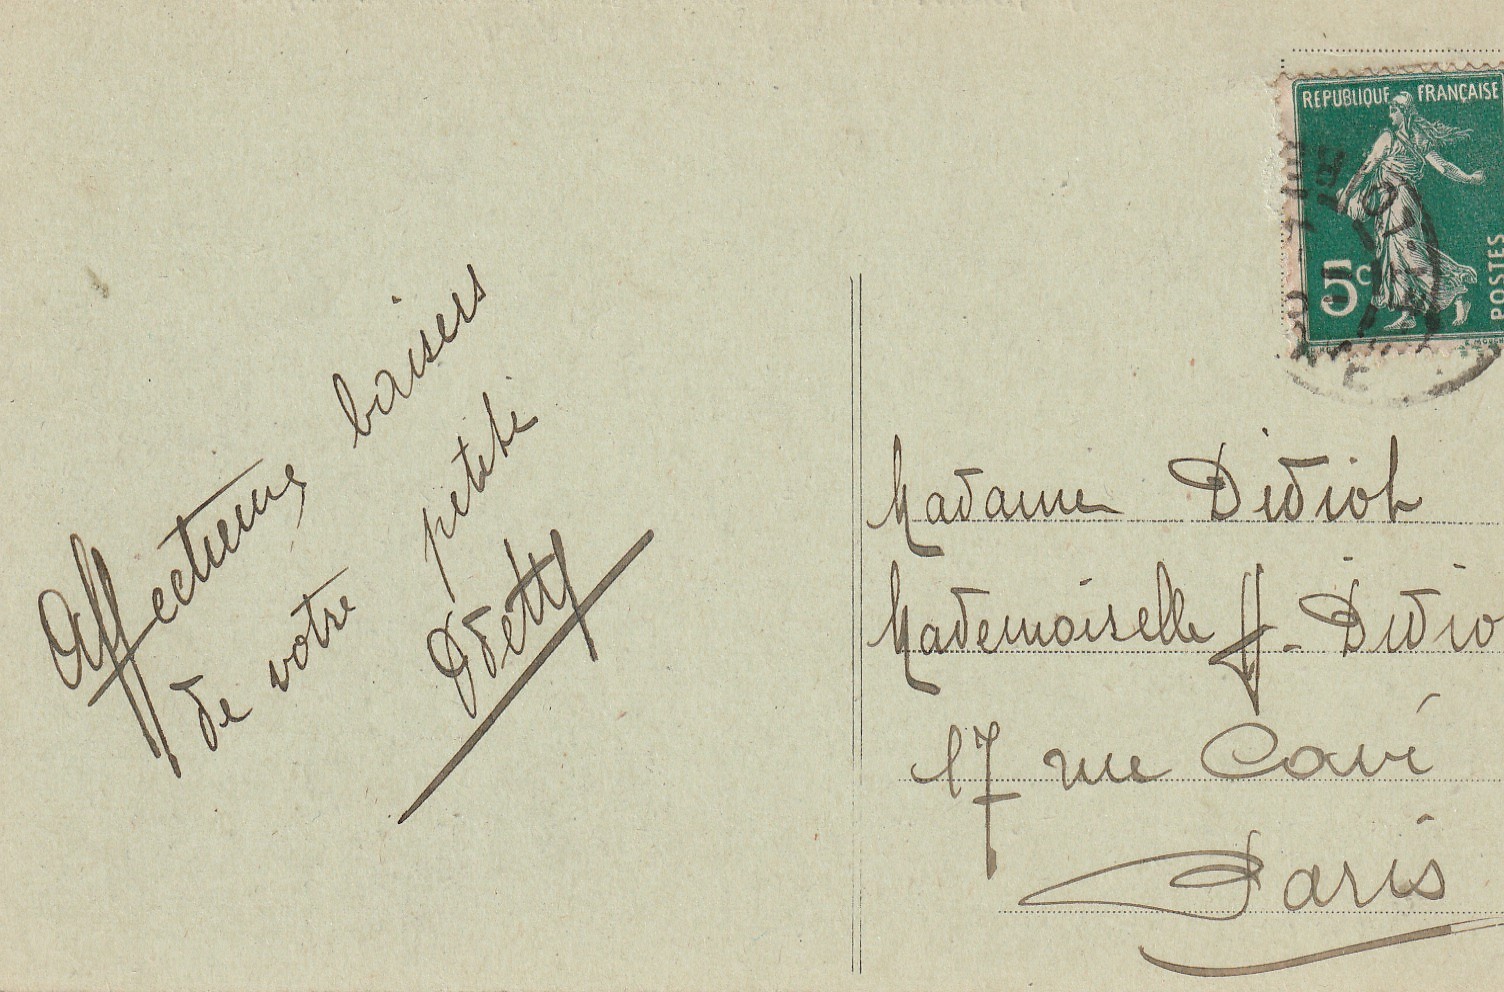 Affectueux baisers
de votre petite
Odette
REPUBLIQUE FRANÇAISE
5c
POSTES
Madame Didiot
Mademoiselle H. Didio
17 rue Cavé
Paris